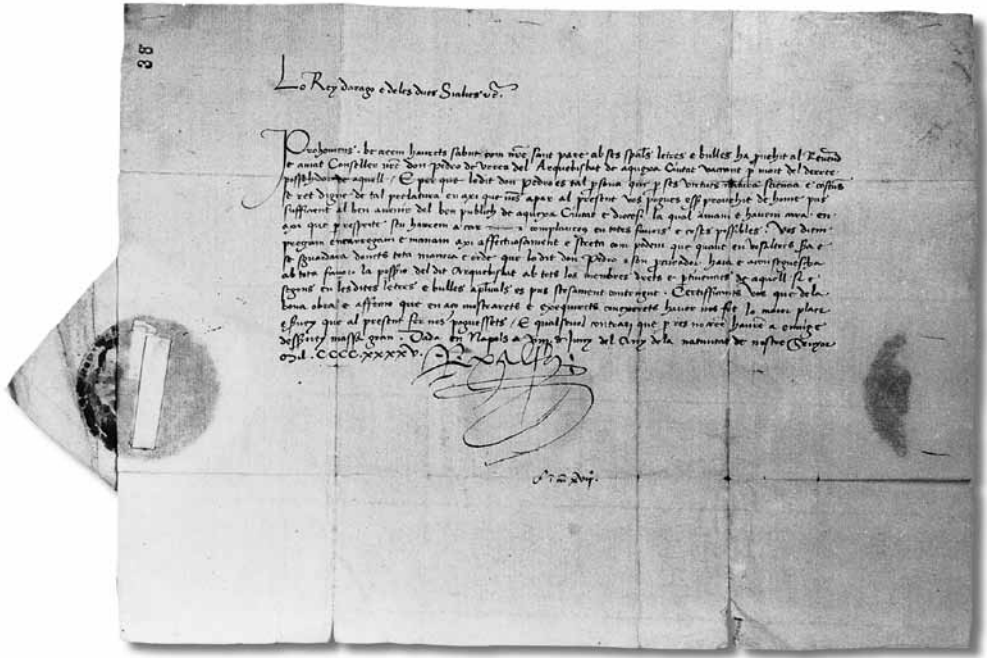 38
Lo Rey darago e deles dues Sicilies etc.
Prohomens. be creem haurets sabut com nre sant pare ab ses letres e bulles ha provehit al Reverend
e amat Conseller nre don Pedro de Urrea del Arquebisbat de aquexa Ciutat vaccant p mort del derrer
possehidor de aquell / E per que lodit don Pedro es tal psona que p ses virtuts sciencia e costums
se ret digne de tal prelatura en axi que nos apar al present vos pogues esser provehit de home pus
sufficient al ben avenir del ben publich de aquexa Ciutat e diocesi la qual amam e havem cara en
axi que p respecte seu haurem a car complaureu en totes favors e coses possibles. Vos dem
pregam encarregam e manam axi affectuosament e streta com podem que quant en vosaltres sia e
se sguardara donets tota manera e orde que lo dit don Pedro o son procurador haia e aconseguesca
ab tota favor la possessio del dit Arquebisbat ab tots los membres drets e ptinencies de aquell si e
segons en lesdites letres e bulles apostolicals es pus stesament contengut. Certifficants vos que dela
bona obra e affeccio que en aço mostrarets e exequirets coneixerets haver nos fet lo maior plaer
e servey que al present fer nos poguessets / E qualsevol contrari que p res no creem haurie a enuig e
desservey massa gran. Dada en Napols a de Juny del Any dela nativitat de nostre Senyor
Mil.CCCC.xxxxv.
Rex Alfonsus